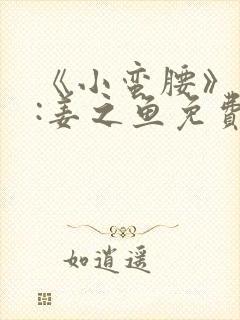 《小蛮腰》
:姜之鱼免费
如逍遥